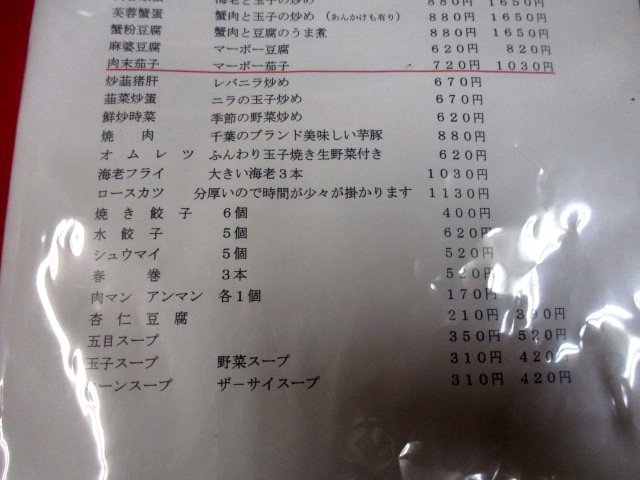 海老と玉子の炒め 880円 1650円
芙蓉蟹蛋 蟹肉と玉子の炒め (あんかけも有り) 880円 1650円
蟹粉豆腐 蟹肉と豆腐のうま煮 880円 1650円
麻婆豆腐 マーボー豆腐 620円 820円
肉末茄子 マーボー茄子 720円 1030円
炒韮猪肝 レバニラ炒め 670円
韮菜炒蛋 ニラの玉子炒め 670円
鮮炒時菜 季節の野菜炒め 620円
焼肉 千葉のブランド美味しい芋豚 880円
オムレツ ふんわり玉子焼き生野菜付き 620円
海老フライ 大きい海老3本 1030円
ロースカツ 分厚いので時間が少々が掛かります 1130円
焼き餃子 6個 400円
水餃子 5個 620円
シュウマイ 5個 520円
春巻 3本 520円
肉マン アンマン 各1個 170円
杏仁豆腐 210円 390円
五目スープ 350円 520円
玉子スープ 野菜スープ 310円 420円
ーンスープ ザーサイスープ 310円 420円